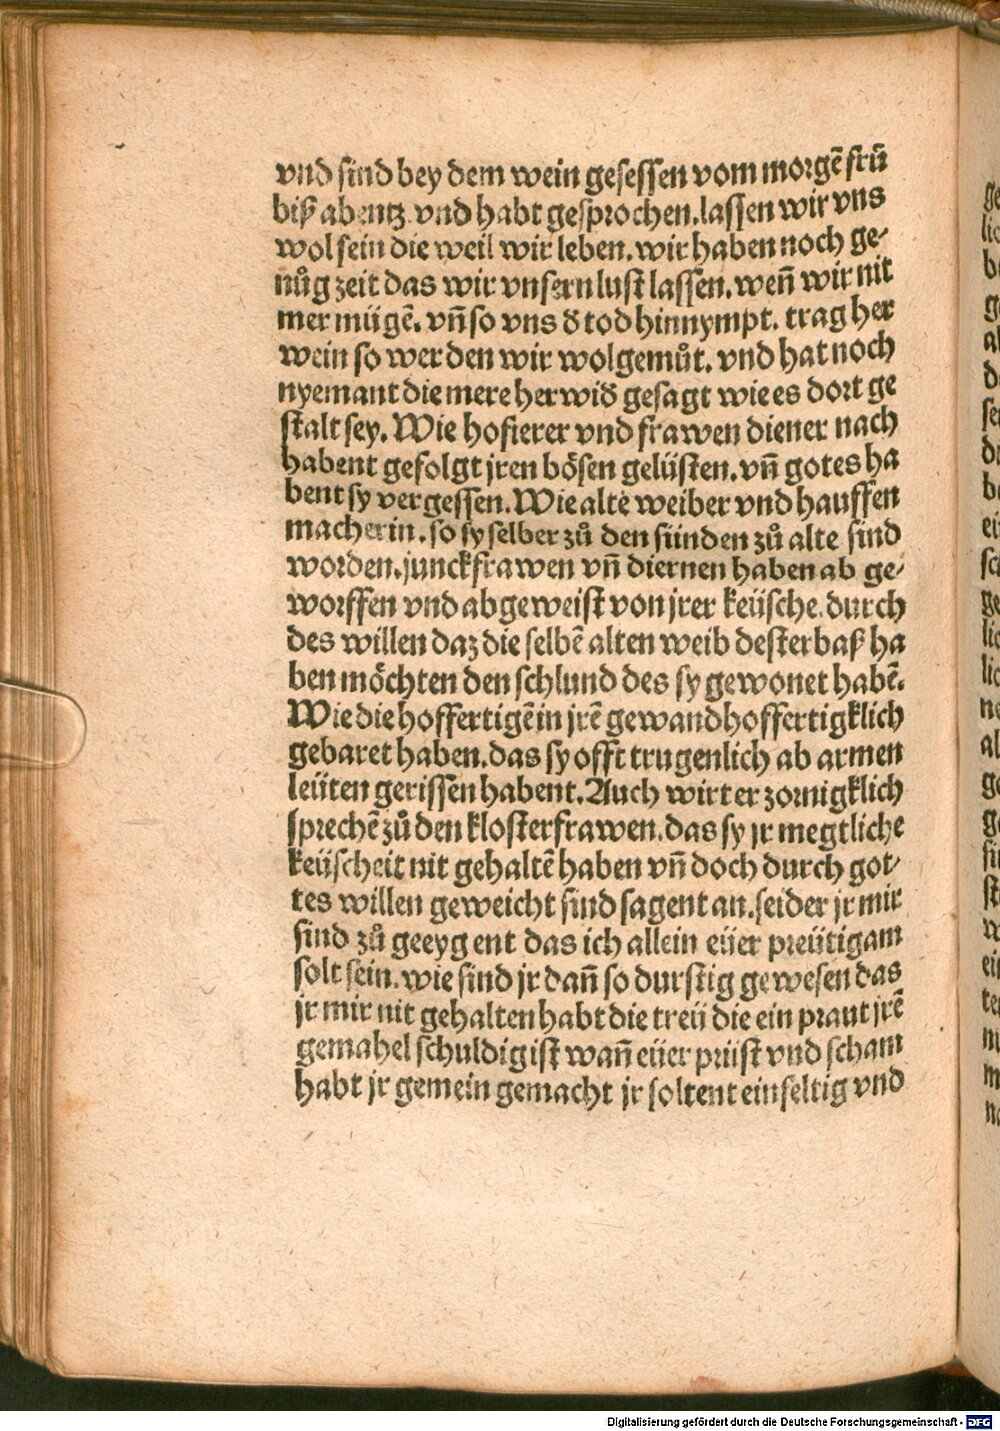 vnd sind bey dem wein gesessen vom morgē frü
biß abentz. vnd habt gesprochen. lassen wir vns
wol sein die weil wir leben. wir haben noch ge-
nůg zeit das wir vnsern lust lassen. weñ wir nit
mer mügē. vñ so vns đ tod hinnympt. trag her
wein so werden wir wolgemůt. vnd hat noch
nyemant die mere her wiđ gesagt wie es dort ge
stalt sey. Wie hofierer vnd frawen diener nach
habent gefolgt jren bösen gelüsten. vñ gotes ha
bent sy vergessen. Wie alte weiber vnd hauffen
macherin. so sy selber zů den sünden zů alte sind
worden. junckfrawen vñ diernen haben ab ge-
worffen vnd abgeweist von jrer keüsche. durch
des willen daz die selbē alten weib dester baß ha
ben möchten den schlund des sy gewonet habē.
Wie die hoffertigē in jrē gewand hoffertigklich
gebaret haben. das sy offt trugenlich ab armen
leüten gerissen habent. Auch wirt er zornigklich
sprechē zů den klosterfrawen. das sy jr megtliche
keüscheit nit gehaltē haben vñ doch durch got-
tes willen geweicht sind sagent an. seider jr mir
sind zů geeyg ent das ich allein eüer preütigam
solt sein. wie sind jr dañ so durstig gewesen das
jr mir nit gehalten habt die treü die ein praut jrē
gemahel schuldig ist wañ eüer prüst vnd scham
habt jr gemein gemacht jr soltent einfeltig vnd
Digitalisierung gefördert durch die Deutsche Forschungsgemeinschaft - DFG